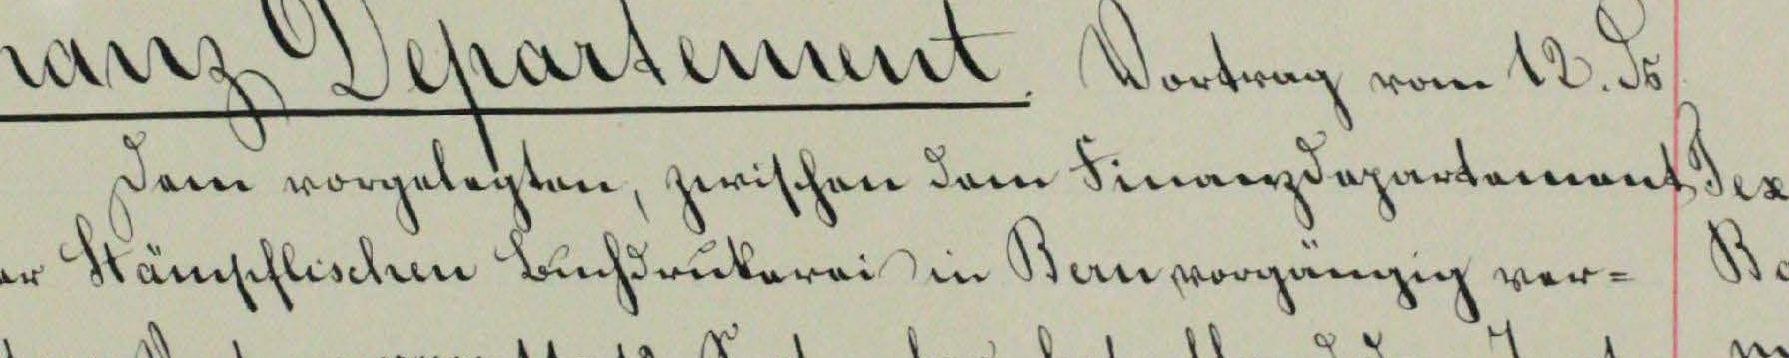 nanz Departement. Vortrag vom 12. Ds
Dem vorgelegten, zwischen dem Finanzdepartement Tex
er Stämpflischen Buchdrukerei in Bern vorgängig ver=